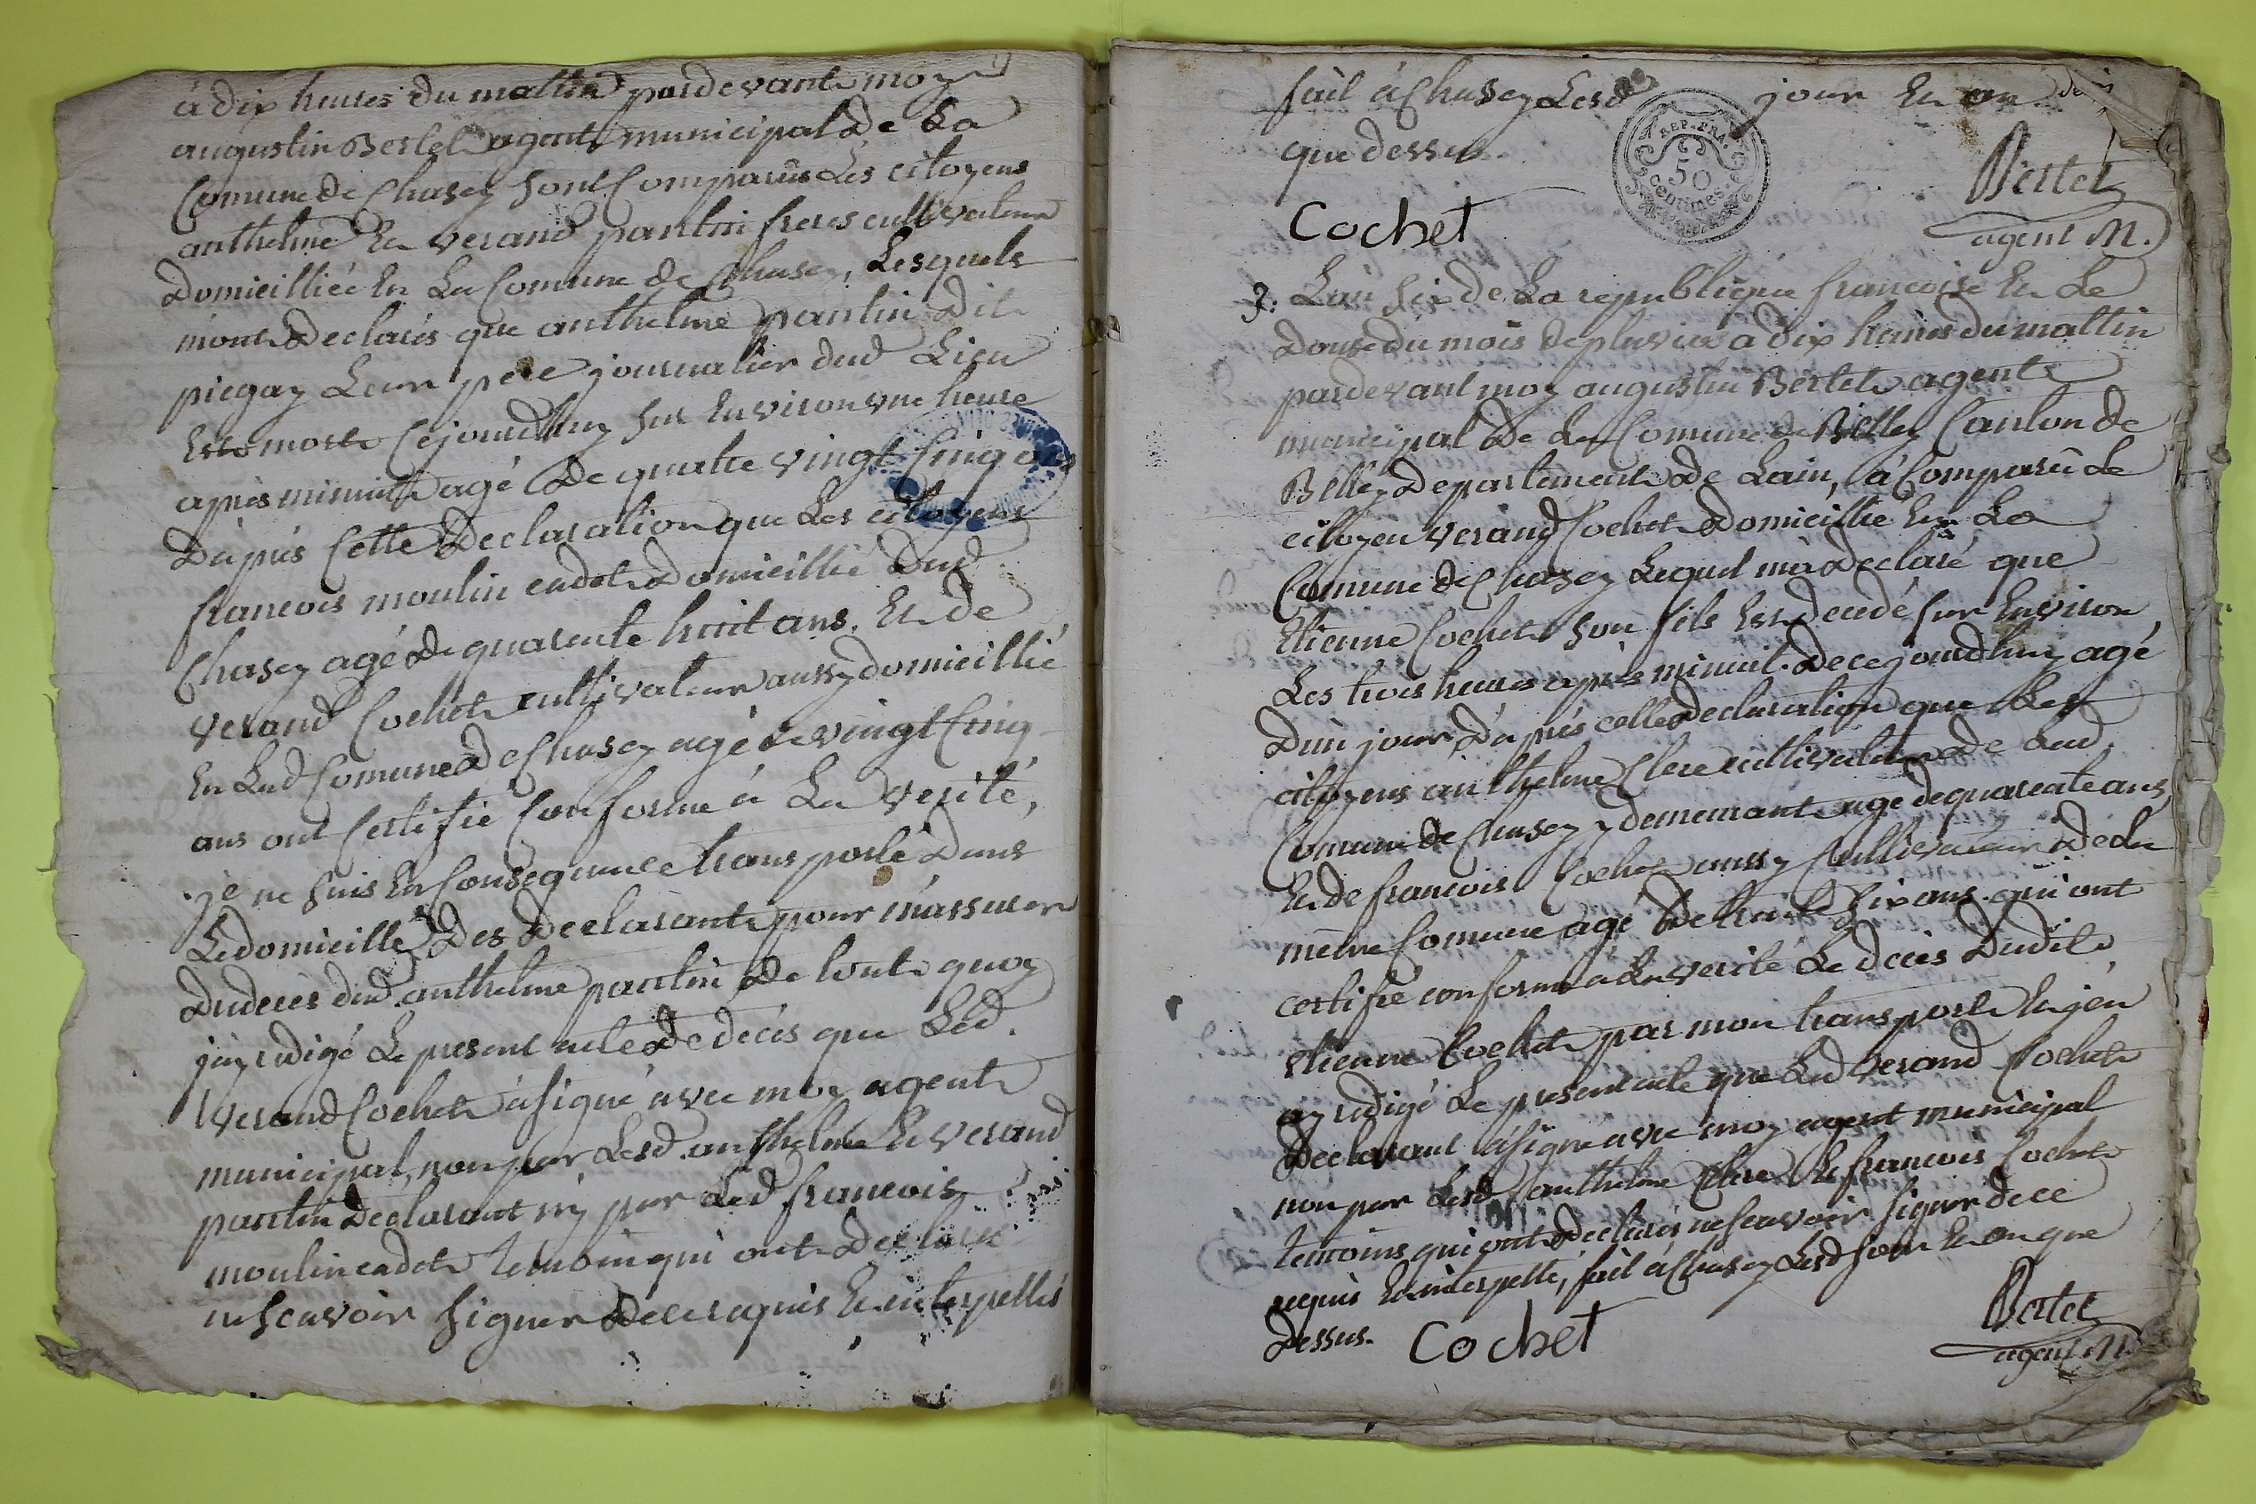 à dix heures du mattin pardevant moy
augustin Bertet agent municipal de La
Comune de Chasey sont Comparûs Les citoyens
anthelme Et verand pantin freres cultivateur
Domicilliés En La Comune de Chasey, Lesquels
m'ont Declarés que anthelme pantin dit
piegay Leur pere journalier dud Lieu
Est mort Cejourdhuy sur Environ une heure
apres minuit agé De quatre vingt Cinq ans
D'aprés Cette Declaration que Les citoyens
francois moulin cadet Domicillié Dud
Chasey agé de quarente huit ans. Et de
Verand Cochet cultivateur aussy domicillié
En Lad Comune de Chasey agé de vingt Cinq
ans ont Certifié Conforme à La verité,
je me suis En Consequence transporté Dans
Le domicille Des Declarants pour m'assurer
Du deces dud. anthelme pantin de tout quoy
j'ay redigé Le present acte de décés que Led.
Verand Cochet à signé avec moy agent
municipal, non par Lesd. anthelme Et Verand
pantin Declarant ny par Led francois
moulin cadet temoin qui ont Declarés
ne scavoir signer de ce requis Et interpellés
fait à Chasey Lesd jour Et an
que dessus.
REP. FRA.
50
centimes.
Bertet
agent M.
Cochet
3. L'an six de La republique francoise Et Le
Douze du mois de pluviose a dix heures du mattin
pardevant moy augustin Bertet agent
municipal De La Comune de Belley Canton de
Belley Departement De Lain, à Comparû Le
citoyen verand Cochet Domicillié En La
Comune de Chasey Lequel m'à Declaré que
Etienne Cochet son fils Est decedé sur Environ
Les trois heures après minuit. De cejourdhuy agé
D'un jour D'aprés cette Declaration que Les
citoyens anthelme Clerc cultivateur de Lad
Comune de Chasey y demeurant agé de quarente ans
Et de francois Cochet aussy Cultivateur De La
même Comune agé De trente six ans. qui ont
certifié conforme à La verité Le décès Dudit
etienne Cochet par mon transport Et j'en
ay redigé Le present acte que Led Verand Cochet
Declarant à signé avec moy agent municipal
non par Lesd anthelme Clerc Et francois Cochet
temoins qui ont Declarés ne scavoir signer de ce
requis Et interpellé, fait à Chasey Lesd jour Et an que
Dessus.
Cochet
Bertet
agent M.